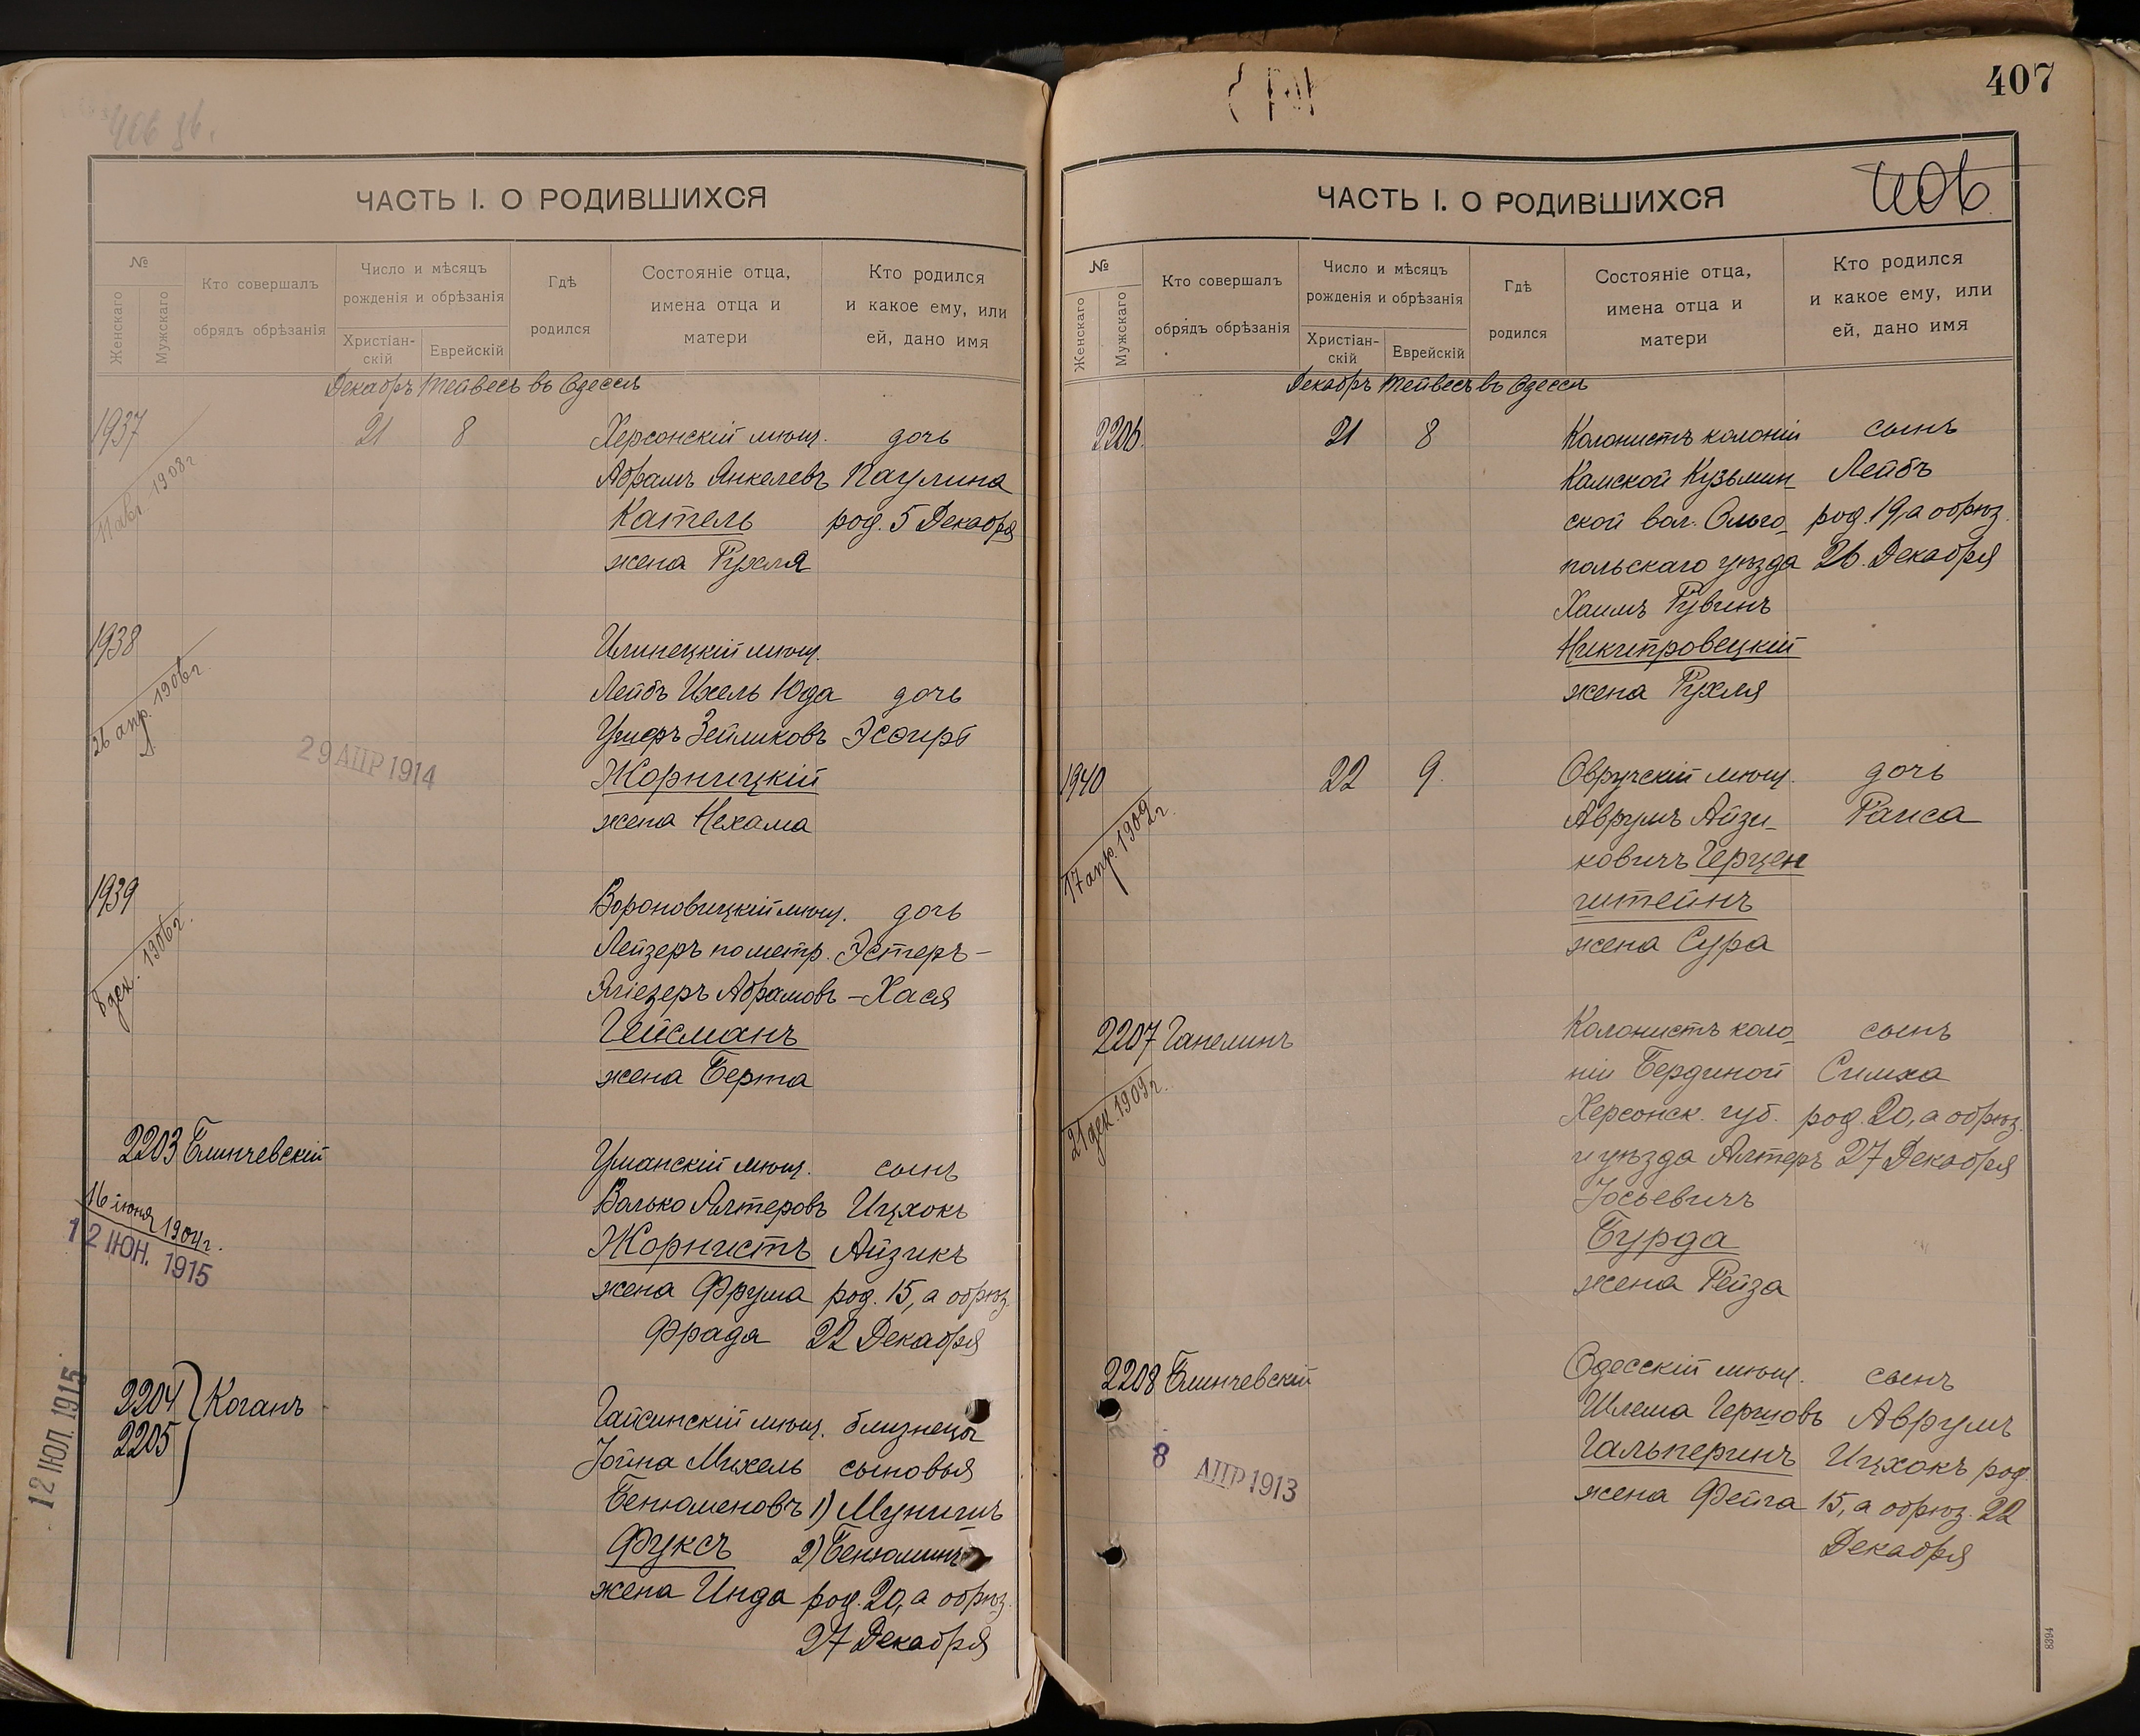 407
ЧАСТЬ I. О РОДИВШИХСЯ
№
Женскаго
Мужскаго
Кто совершалъ
обрядъ обрѣзанія
Число и мѣсяцъ
рожденія и обрѣзанія
Христіан-
скій
Еврейскій
Гдѣ
родился
Состояніе отца,
имена отца и
матери
Кто родился
и какое ему, или
ей, дано имя
Декабрь Тейвесъ въ Одессѣ
1937 21 8 Херсонскій мѣщ. дочь
Абрамъ Янкелевъ Паулина
1908 г.
Катель род. 5 Декабря
жена Рухля
1938 Илинецкій мѣщ.
26 апр. 1906 г.
Лейбъ Ихель Юда дочь
Ушеръ Зейликовъ Эсѳирь
29 АПР 1914
Жорницкій
жена Нехама
1939 Вороновицкій мѣщ. дочь
8 дек. 1906 г.
Лейзеръ по метр. Эстеръ-
Эліезеръ Абрамовъ -Хася
Гейсманъ
жена Берта
2203 Блинчевскій
Уманскій мѣщ. сынъ
16 іюня 1904 г.
12 ІЮН. 1915
Волько Алтеровъ Ицхокъ
Жорнистъ Айзикъ
жена Фрума род. 15, а обрѣз.
Фрада 22 Декабря
12 ІЮЛ. 1915
2204 Коганъ
2205
Гайсинскій мѣщ. близнецы
Іойна Михель сыновья
Бенюменовъ 1) Мунишъ
Фуксъ 2) Бенюминъ
жена Инда род. 20, а обрѣз.
27 Декабря
ЧАСТЬ I. О РОДИВШИХСЯ
406
№
Женскаго
Мужскаго
Кто совершалъ
обрядъ обрѣзанія
Число и мѣсяцъ
рожденія и обрѣзанія
Христіан-
скій
Еврейскій
Гдѣ
родился
Состояніе отца,
имена отца и
матери
Кто родился
и какое ему, или
ей, дано имя
Декабрь Тейвесъ въ Одессѣ
2206. 21 8 Колонистъ колоніи сынъ
Камской Кузьмин- Лейбъ
ской вол. Ольго- род. 19, а обрѣз.
польскаго уѣзда 26 Декабря
Хаимъ Рувинъ
Никитровецкій
жена Рухля
1940 22 9. Овручскій мѣщ. дочь
17 апр. 1909 г.
Аврумъ Айзи- Раиса
ковичъ Герцен
штейнъ
жена Сура
2207 Ганелинъ Колонистъ коло- сынъ
21 дек. 1909 г.
ніи Бердиной Симха
Херсонск. губ. род. 20, а обрѣз.
и уѣзда Алтеръ 27 Декабря
Іосьевичъ
Бурда
жена Рейза
2208 Блинчевскій Одесскій мѣщ. сынъ
Шлема Гершовъ Аврумъ
8 АПР 1913
Гальперинъ Ицхокъ род.
жена Фейга 15, а обрѣз. 22
Декабря
8394